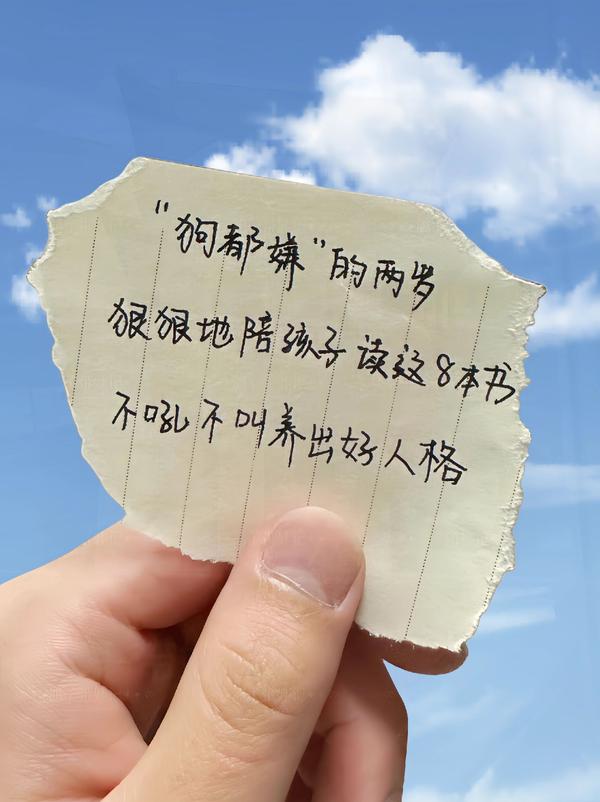 “狗都嫌”的两岁
狠狠地陪孩子读这8本书
不吼不叫养出好人格